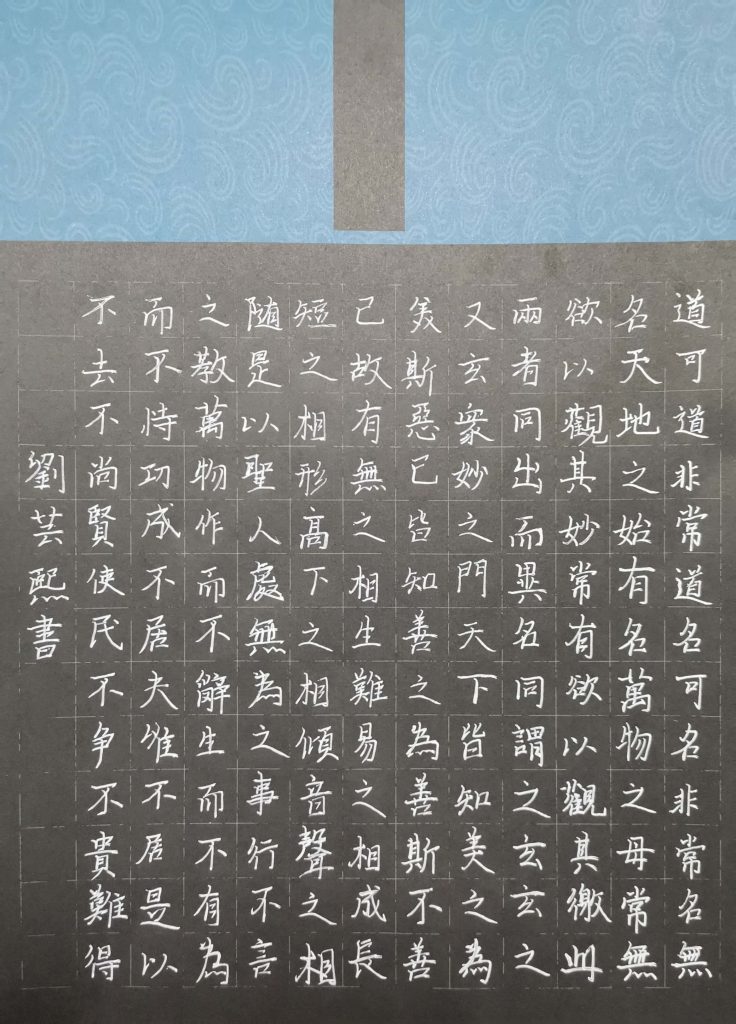 道可道非常道名可名非常名無
名天地之始有名萬物之母常無
欲以觀其妙常有欲以觀其徼此
兩者同出而異名同謂之玄玄之
又玄衆妙之門天下皆知美之為
美斯惡已皆知善之為善斯不善
已故有無之相生難易之相成長
短之相形高下之相傾音聲之相
随是以聖人處無為之事行不言
之教萬物作而不辭生而不有為
而不恃功成不居夫唯不居是以
不去不尚賢使民不争不貴難得
劉芸熙書